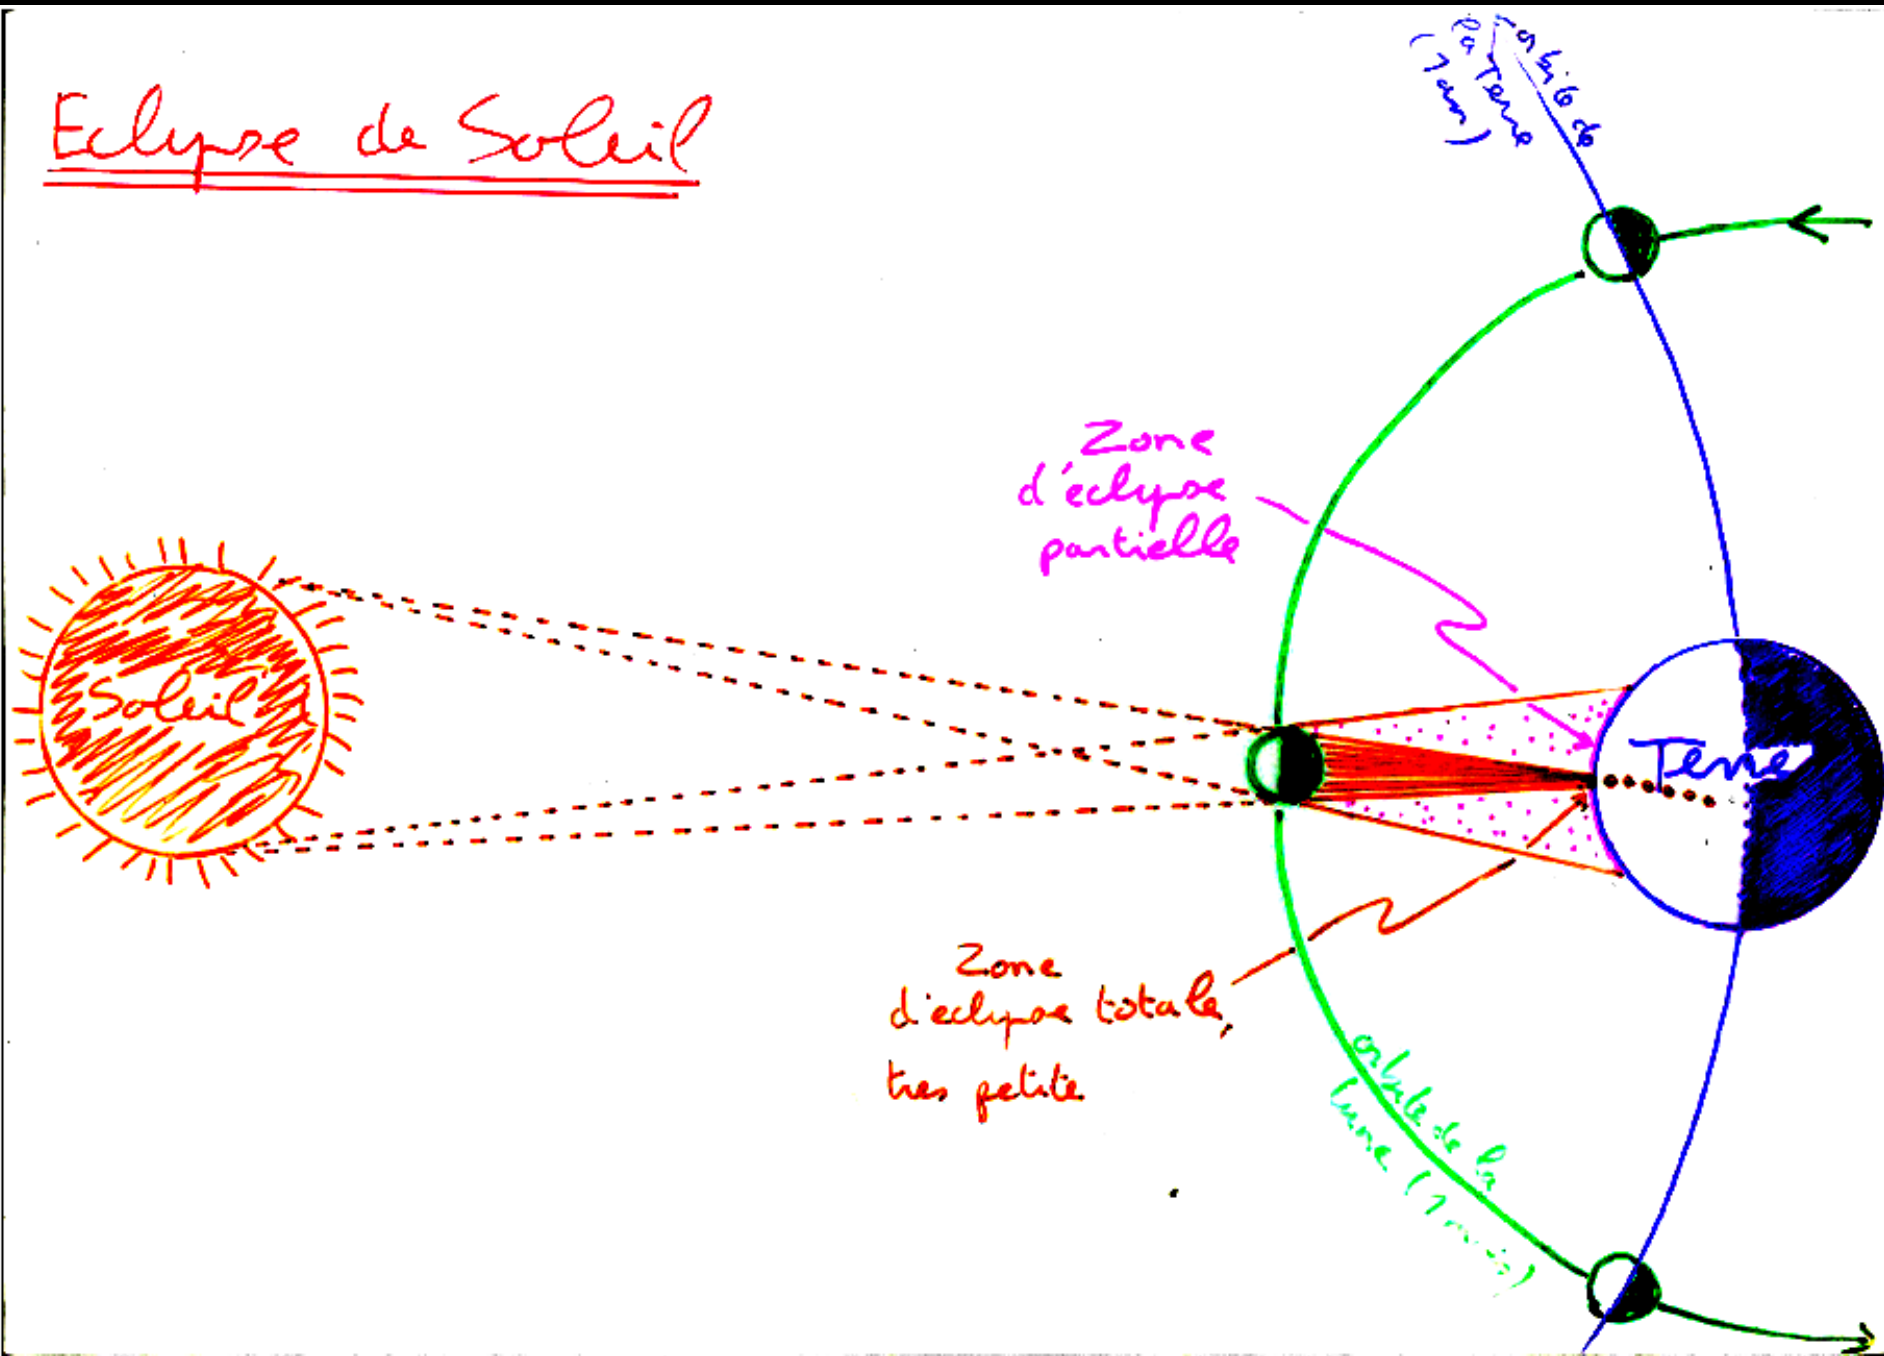 Eclypse de Soleil
orbite de
la Terre
(1 an)
Zone
d'éclypse
partielle
Soleil
Terre
Zone
d'eclypse totale,
tres petite
orbite de la
lune (1 mois)